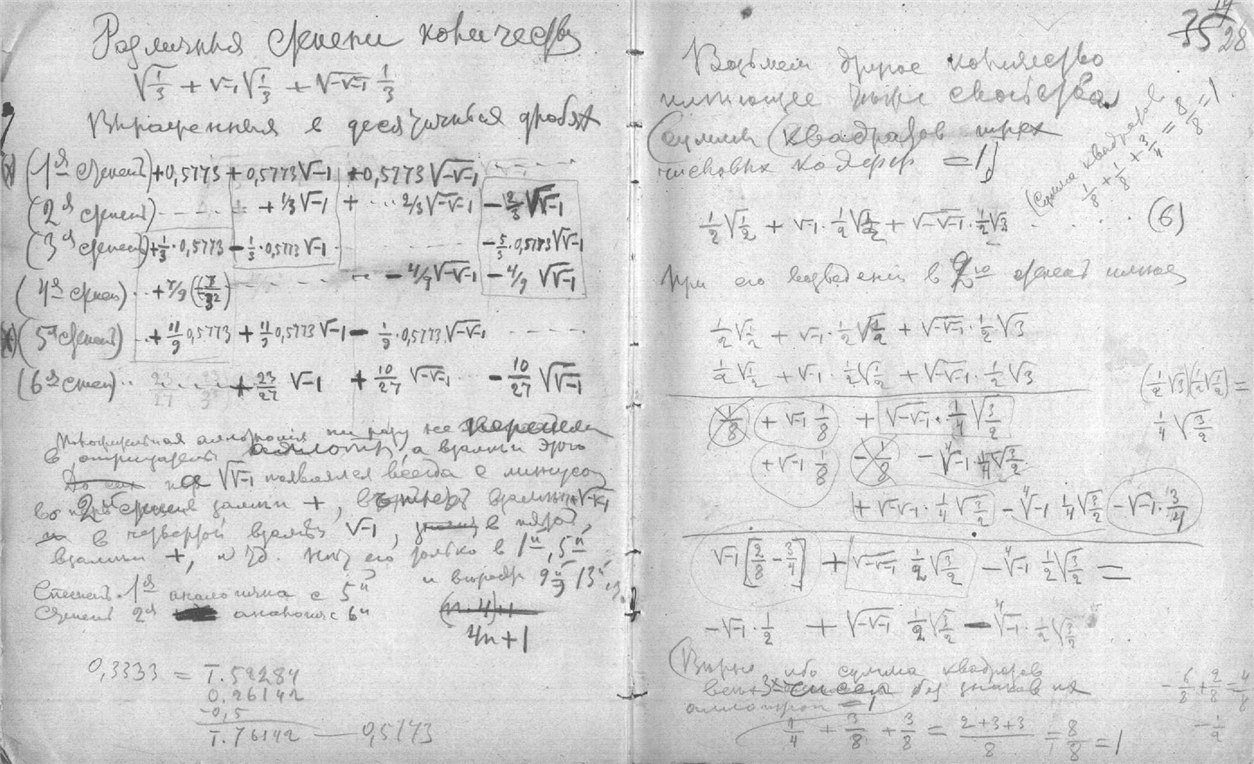 Различныя степени количества
√1/3 + √-1 √1/3 + √-√-1 1/3
Выраженныя в десятичных дробях
(1ая степень) +0,5773 +0,5773√-1 +0,5773√-√-1
(2ая степень) + 1/3√-1 + 2/3√-√-1 - 2/3√√-1
(3я степень) +1/3·0,5773 - 1/3·0,5773√-1 - 5/3·0,5773√√-1
(4ая степен) +7/9 (7/3²) - 4/9√-√-1 - 4/9√√-1
(5ая степень) +11/9 0,5773 + 11/9 0,5773√-1 - 1/9·0,5773√-√-1
(6ая степ) 23/27 + 23/27 √-1 + 10/27 √-√-1 - 10/27 √√-1
ни разу не
а взамен этого
√√-1 появлялся всегда с минусом
во 2ой степени взамен +, взамен √-√-1
в четвертой взамен √-1, в пятой,
взамен +, и т.д. Нет его только в 1ой, 5ой
и вторая 9ой 13ой
Степень 1ая аналогична с 5ой
Степень 2ая аналогична с 6ой
(n-4)+1
4n+1
0,3333 = 1.52284
0,26142
-0,5
1.76142 — 0,5773
35 28
Возьмем другое количество
имеющее те же свойства
(сумма (квадратов трех
числовых коэфф =1)
(Сумма квадратов
1/8 + 1/8 + 3/4 = 8/8 = 1
1/2√1/2 + √-1·1/2√1/2 + √-√-1·1/2√3 (6)
При его возведении в 2ую степень имеем
1/2√1/2 + √-1·1/2√1/2 + √-√-1·1/2√3
1/2√1/2 + √-1·1/2√1/2 + √-√-1·1/2√3
(1/2√3)(1/2√1/2) =
1/4√3/2
1/8 + √-1 1/8 + √-√-1·1/4√3/2
+√-1 1/8 - 1/8 - ∜-1·1/4√3/2
+√-√-1·1/4√3/2 - ∜-1 1/4√3/2 - √-1·3/4
√-1[2/8 - 3/4] + √-√-1 1/2√3/2 - ∜-1 1/2√3/2 =
-√-1·1/2 + √-√-1 1/2√3/2 - ∜-1·1/2√3/2
(Верно ибо сумма квадратов
всех 3х чисел без знаков их
=1
1/4 + 3/8 + 3/8 = 2+3+3/8 = 8/8 = 1
-6/8 + 2/8 = 4/8
-1/2